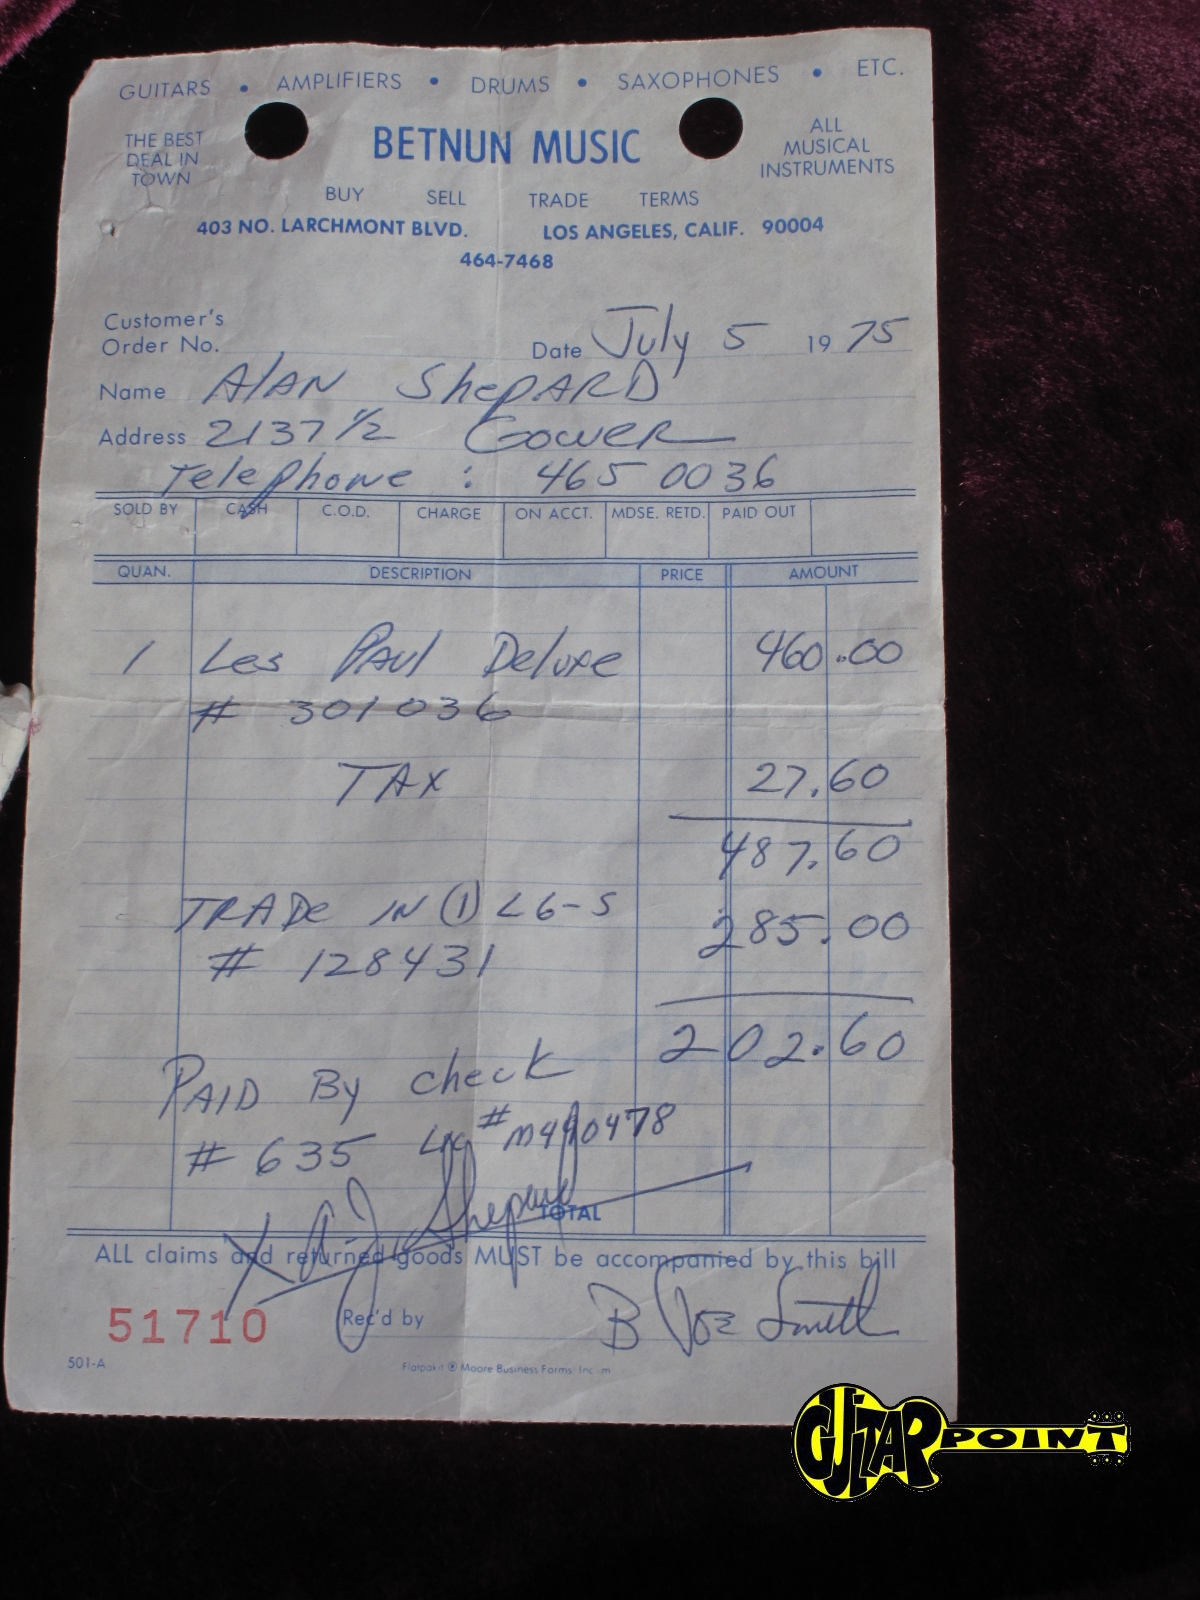 GUITARS • AMPLIFIERS • DRUMS • SAXOPHONES • ETC.
THE BEST DEAL IN TOWN
BETNUN MUSIC
ALL MUSICAL INSTRUMENTS
BUY SELL TRADE TERMS
403 NO. LARCHMONT BLVD. LOS ANGELES, CALIF. 90004
464-7468
Customer's
Order No. Date July 5 1975
Name Alan Shepard
Address 2137 1/2 Gower
Telephone : 465 0036
SOLD BY CASH C.O.D. CHARGE ON ACCT. MDSE. RETD. PAID OUT
QUAN. DESCRIPTION PRICE AMOUNT
1 Les Paul Deluxe 460.00
# 301036
TAX 27.60
487.60
TRADE IN (1) L6-S 285.00
# 128431
202.60
PAID By check
# 635 #
X A.J. Shepard
TOTAL
ALL claims and returned goods MUST be accompanied by this bill
51710 Rec'd by B Joe Smith
501-A Moore Business Forms, Inc.
GUITAR POINT